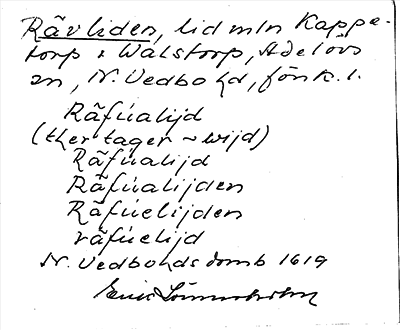 Rävliden, lid mln Kappe-
torp o Walstorp, Adelövs
sn, N. Vedbo hd, Jönk. l.
Räfúalijd
(ther tager ~ wijd)
Räfúalijd
Räfúalijden
Räfúelijden
räfúelijd
N. Vedbo hds domb 1619